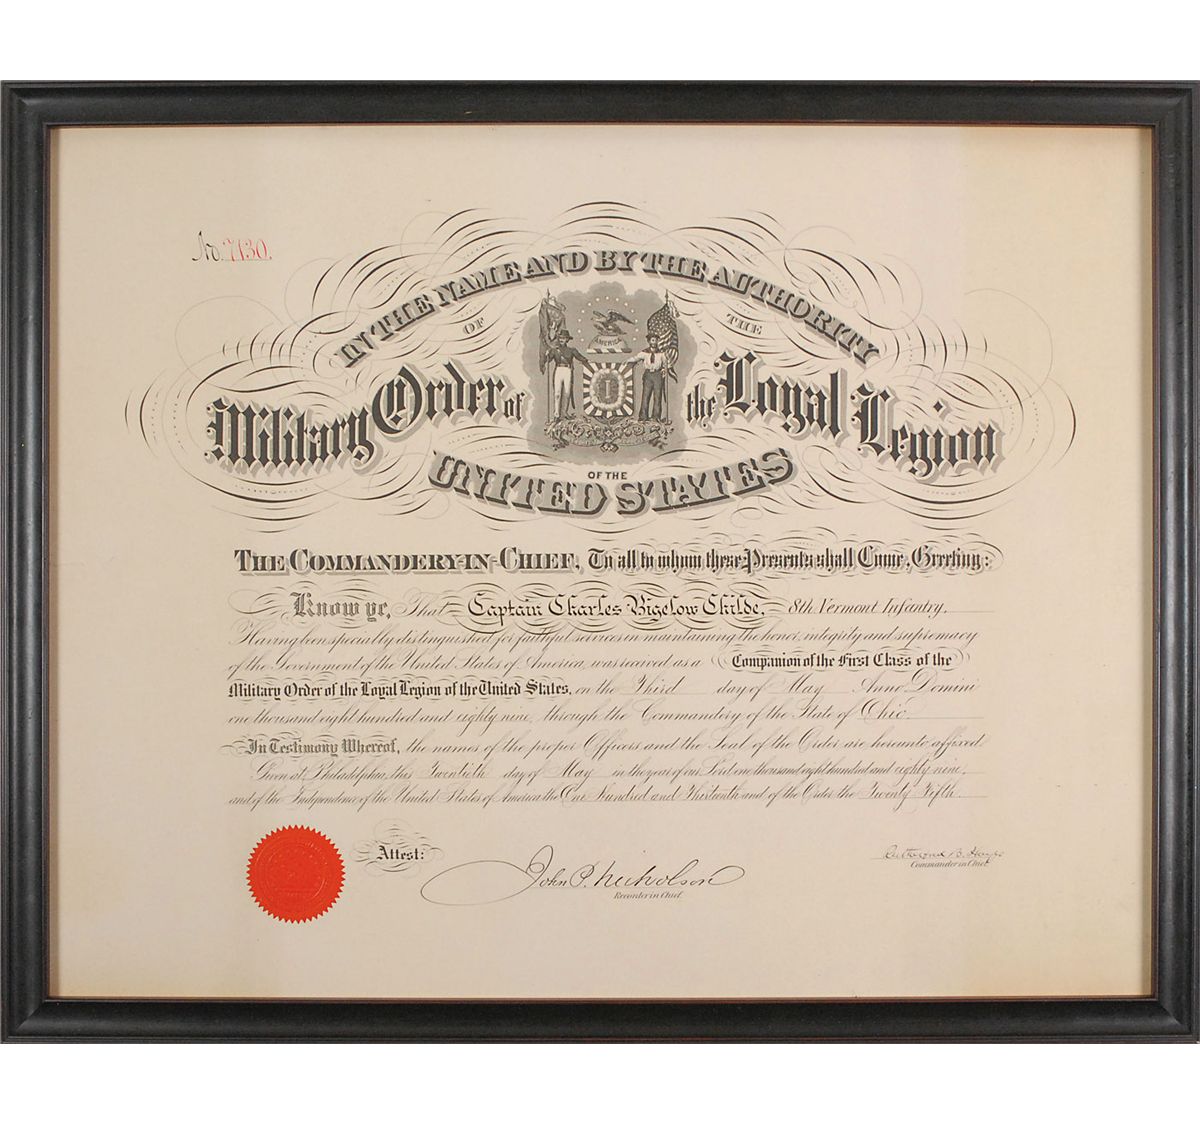 No. 7130.
IN THE NAME AND BY THE AUTHORITY
OF THE
AMERICA
Military Order of the Loyal Legion
OF THE
UNITED STATES
THE COMMANDERY-IN-CHIEF, To all to whom these Presents shall Come, Greeting:
Know ye, That Captain Charles Bigelow Childe, 8th Vermont Infantry,
Having been specially distinguished for faithful services in maintaining the honor, integrity and supremacy
of the Government of the United States of America, was received as a Companion of the First Class of the
Military Order of the Loyal Legion of the United States, on the Third day of May Anno Domini
one thousand eight hundred and eighty nine, through the Commandery of the State of Ohio.
In Testimony Whereof, the names of the proper Officers and the Seal of the Order are hereunto affixed.
Given at Philadelphia, this Twentieth day of May in the year of our Lord one thousand eight hundred and eighty nine,
and of the Independence of the United States of America the One Hundred and Thirteenth and of the Order the Twenty Fifth.
Attest:
John P. Nicholson
Recorder in Chief.
Rutherford B. Hayes
Commander in Chief.